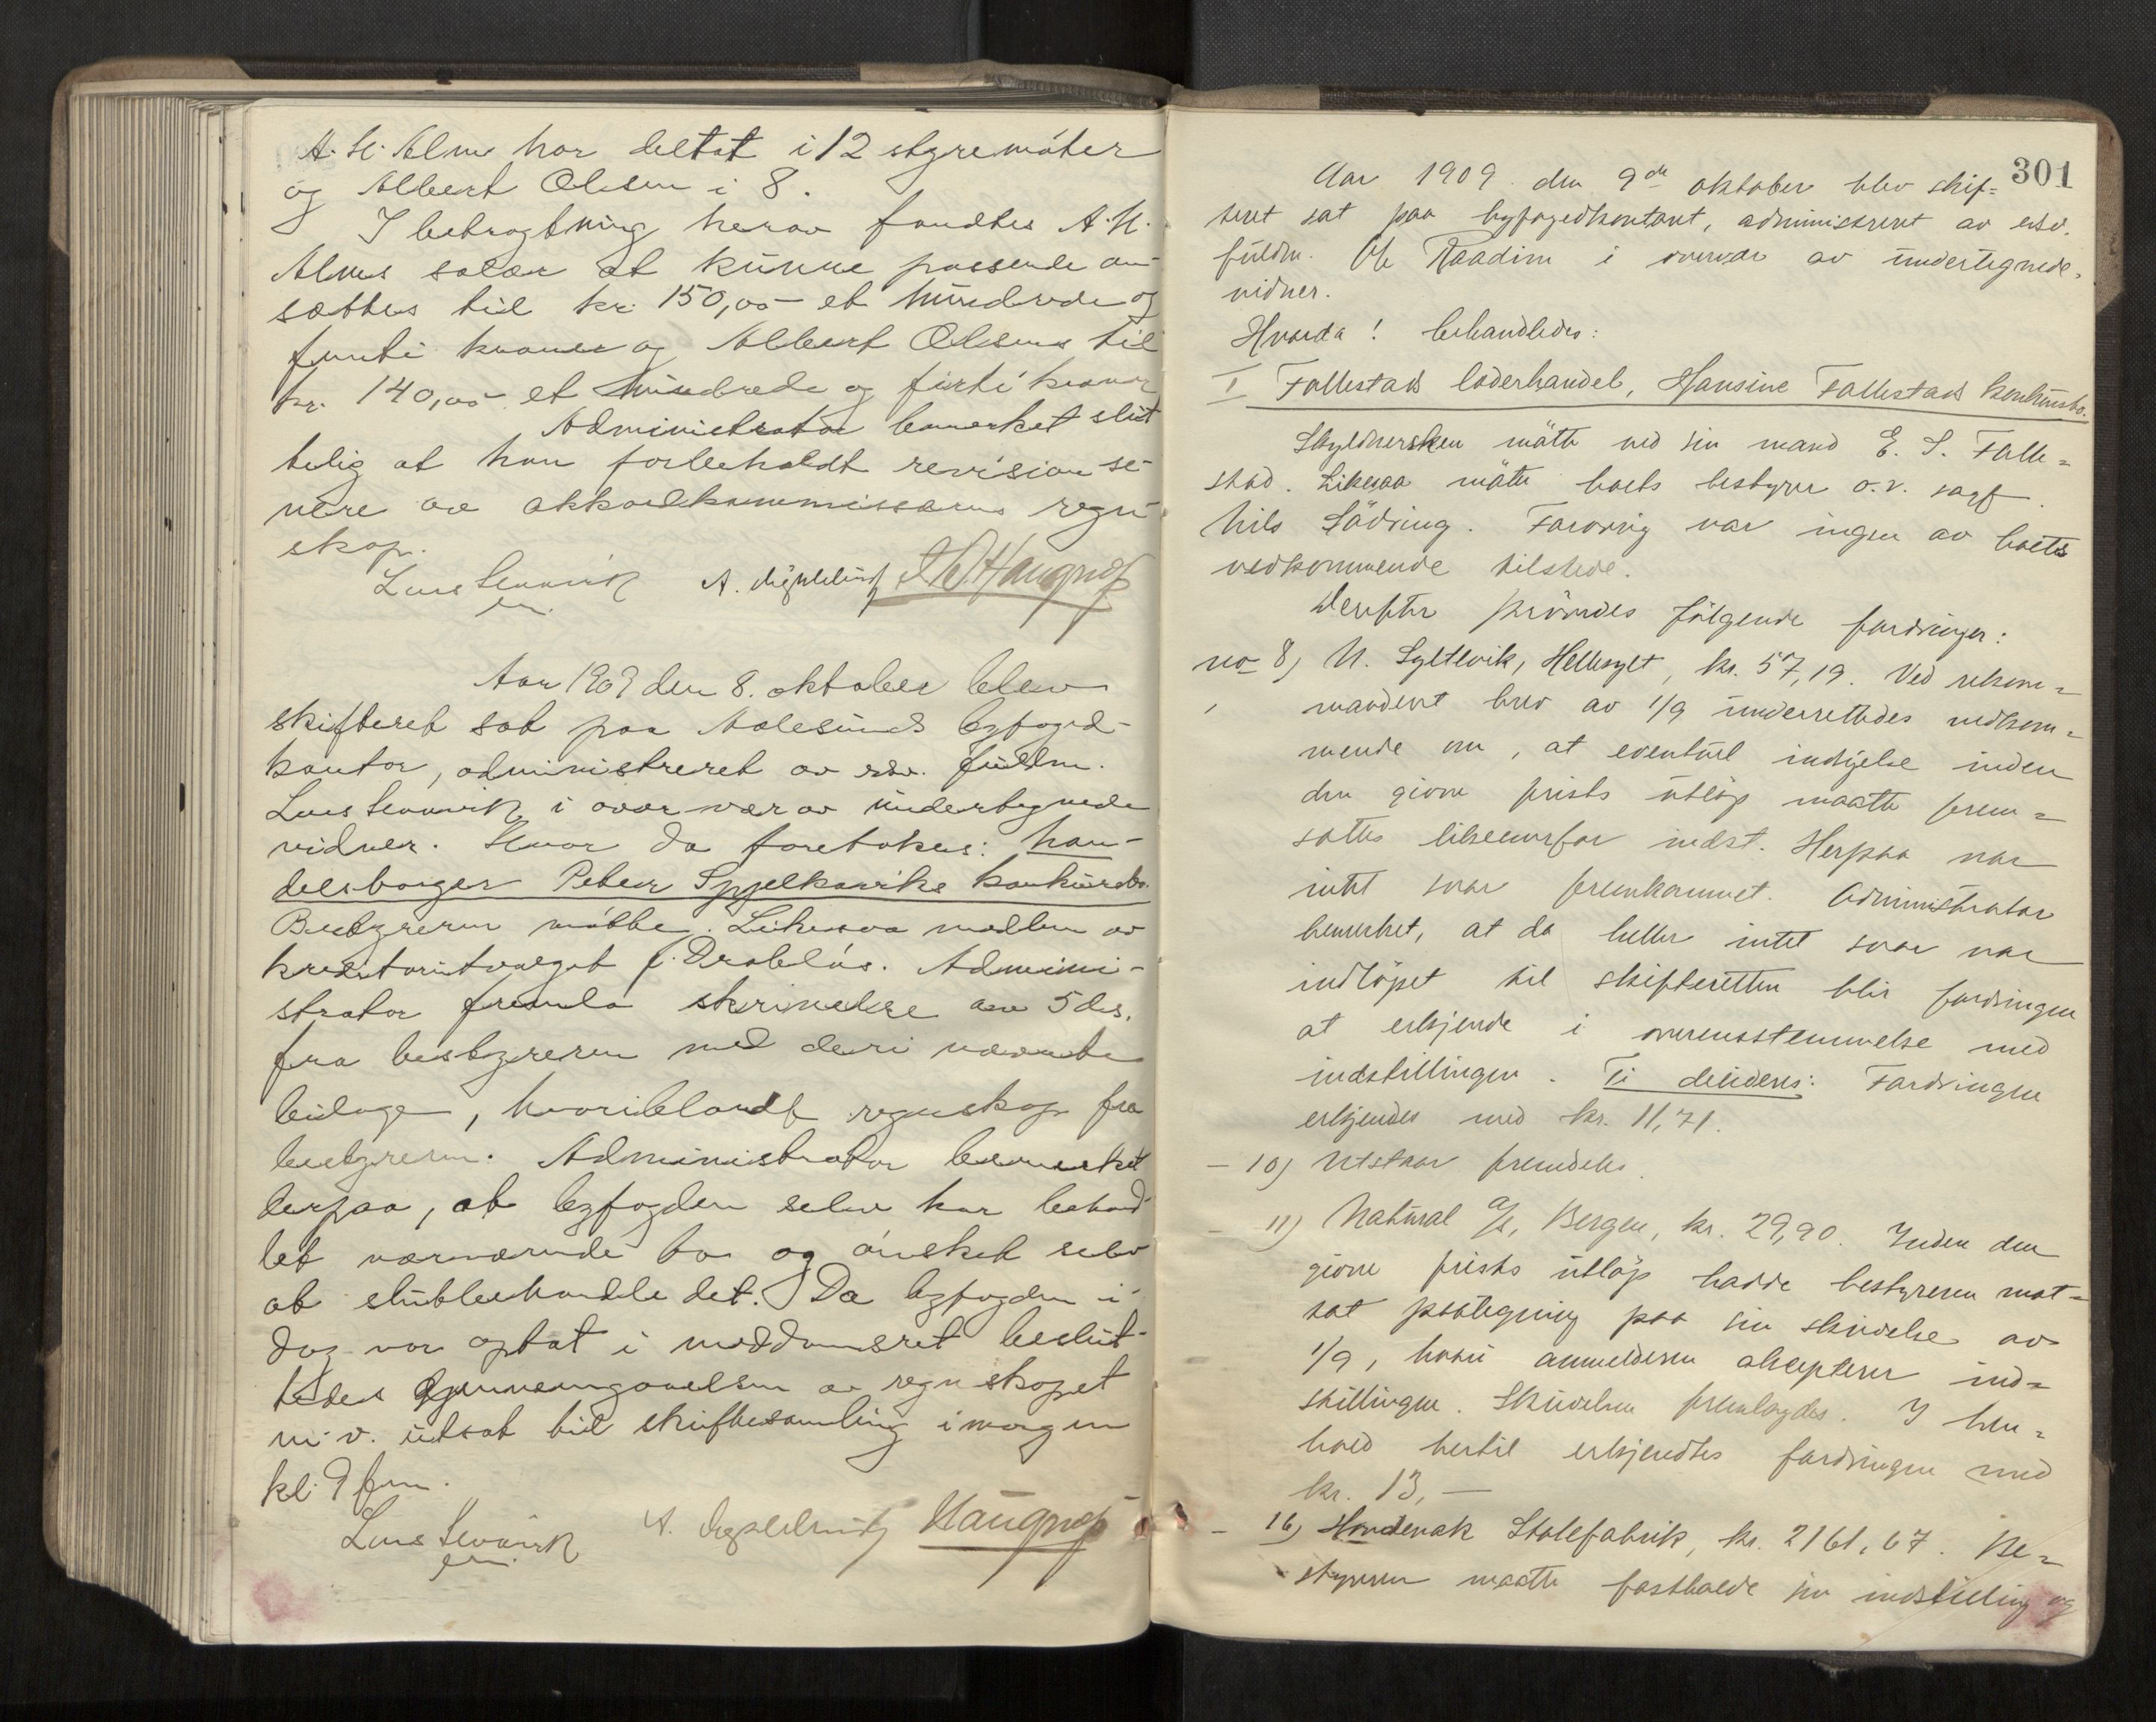 A. H. Alme har deltat i 12 styremöter
og Albert Olsen i 8.
I betragtning herav fandtes A. H.
Almes salær at kunne passende an-
sættes til kr. 150,00 et hundrede og
femti kroner og Albert Olsens til
kr. 140,00 et hundrede og firti kroner
Administrator bemerket slut
telig at han forbeholdt revision se-
nere av akkordkommissærens regn
skap.
Lars Sennvik
em.
Aar 1909 den 8. oktober blev
skifteret sat paa Aalesunds byfoged-
kontor, administreret av edsv. fuldm.
Lars Sennvik i overvær av undertegnede
vidner. Hvor da foretokes: han-
delsborger Peter Spjelkaviks konkursbo.
Bestyreren mötte. Likesaa medlem av
kreditorutvalget J. Drabløs. Admini-
strator fremla skrivelse av 5 ds.
fra bestyreren med deri nævnte
bilage, hvoriblandt regnskap fra
bestyreren. Administrator bemerket
derpaa, at byfogden selv har behand-
let nærværende bo og ønsket selv
at slutbehandle det. Da byfogden i-
dag var optat i meddomsret beslut-
tedes gjennemgaaelsen av regnskapet
m. v. utsat til skiftesamling imorgen
kl. 9 fm.
Lars Sennvik
em.
301
Aar 1909 den 9de oktober blev skif=
teret sat paa byfogedkontoret, administreret av edsv.
fuldm. Ole Raadim i overvær av undertegnede
vidner.
Hvorda! behandledes:
I Fallestads læderhandel, Hansine Fallestads konkursbo.
Skyldnersken mötte ved sin mand E. S. Falle=
stad. Likesaa mötte boets bestyrer o.r. sagf.
Nils Södring. Forövrig var ingen av boets
vedkommende tilstede.
Derefter prövedes fölgende fordringer:
no 8) N. Syltevik, Hellesylt, kr. 57,19. Ved rekom=
manderet brev av 1/9 underrettedes vedkom=
mende om, at eventuel indsigelse inden
den givne frists utlöp maatte frem=
sættes likeoverfor indst. Herpaa var
intet svar fremkommet. Administrator
bemerket, at da heller intet svar var
indlöpet til skifteretten blir fordringen
at erkjende i overensstemmelse med
indstillingen. Ti decideres: Fordringen
erkjendes med kr. 11,71.
- 10) Utstaar fremdeles.
- 11) Natural A/S, Bergen, kr. 29,90. Inden den
givne frists utlöp hadde bestyreren mot=
tat paategning paa sin skrivelse av
1/9, hvori anmelderen aksepterer ind=
stillingen. Skrivelsen fremlagdes. I hen=
hold hertil erkjendtes fordringen med
kr. 13,-
- 16) Hondenak Stolefabrik, kr. 2161,67. Be=
styreren maatte fastholde sin indstilling og